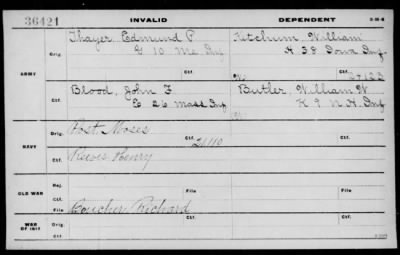 36421 INVALID DEPENDENT
Thayer Edmund P Ketchum, William
Orig. G 10 Me Inf H 38 Iowa Inf.
ARMY Ctf. W.
Blood, John F Butler, William W
Ctf. E 26 Mass Inf K 9 N.H. Inf
Post Moses
Orig. Ctf.
NAVY
Reeves Henry
Ctf.
Rej.
OLD WAR File File
Ctf. Boucher Richard
WAR OF 1812 Orig. Ctf.
Ctf.